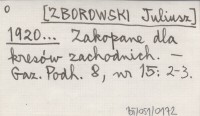 o [ZBOROWSKI Juliusz]
1920... Zakopane dla
kresów zachodnich. —
Gaz. Podh. 8, nr 15: 2-3.